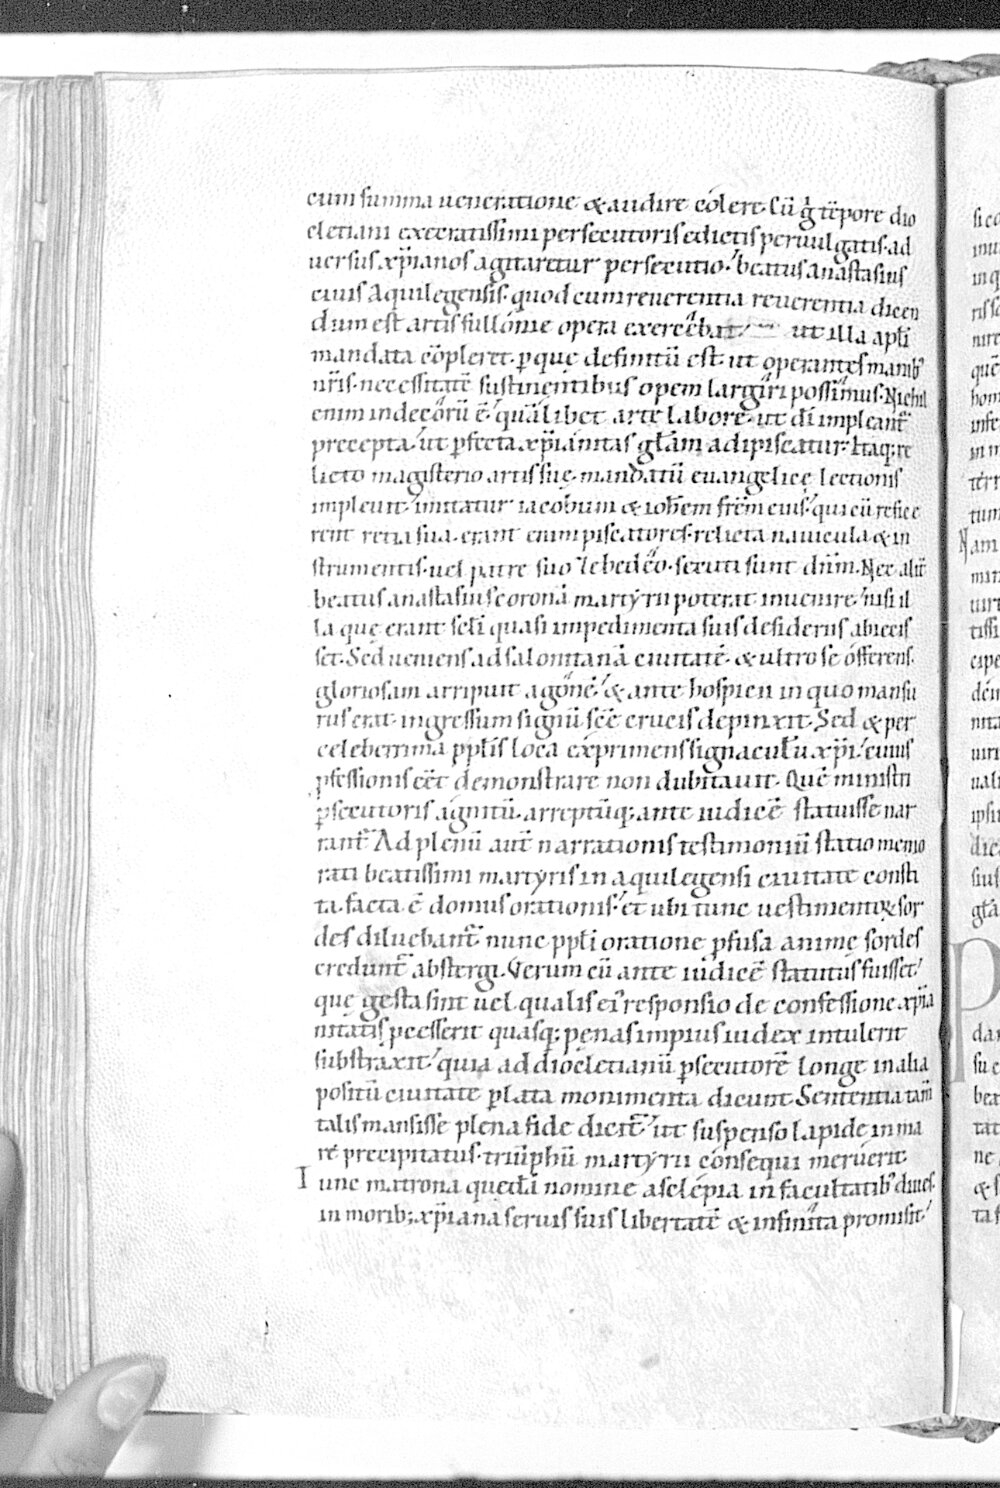 cum summa ueneratione & audire cólere. Cū g̊ tēpore dio
cletiani execratissimi persecutoris edictis peruulgatis. ad
uersus xp̄ianos agitaretur persecutio. beatus anastasius
ciuis Aquilegensis. quod cum reuerentia reuerentia dicen
dum est artis fullonie opera exercebat. ut illa apl̄i
mandata cōpleret. ꝑ que definitū est. ut operantes manibꝰ
nr̄is. necessitatē sustinentibus opem largiri possimus. Nichil
enim indecorū ē. qualibet arte labore. ut dī impleant̄
precepta. ut ꝑfecta xp̄ianitas gl̄am adipiscatur. Itaq; re
licto magisterio artis sue. mandatū euangelicę lectionis
impleuit. imitatur iacobum & ioh̄em fr̄em eius. qui cū refice
rent retia sua. erant enim piscatores. relicta nauicula & in
strumentis. uel patre suo zebedeo. secuti sunt dn̄m. Nec alit̄
beatus anastasius coronā martyrii poterat inuenire. nisi il
la que erant scl̄i quasi impedimenta suis desideriis abiecis
set. Sed ueniens ad salonitanā ciuitatē. & ultro se offerens.
gloriosam arripuit agonē. & ante hospicii in quo mansu
rus erat ingressum signū scē crucis depinxit. Sed & per
celeberrima ppl̄is loca exprimens signaculū xp̄i. cuius
ꝓfessionis eēt demonstrare non dubitauit. Quē ministri
ꝑsecutoris agnitū. arreptūq; ante iudicē statuisse nar
rant̄. Ad plenū aut̄ narrationis testimoniū statio memo
rati beatissimi martyris in aquilegensi ciuitate consti
ta. facta ē domus orationis. et ubi tunc uestimentoꝝ sor
des diluebant̄. nunc ppl̄i oratione ꝓfusa animę sordes
credunt̄ abstergi. Verum cū ante iudicē statutus fuisset.
quę gesta sint uel qualis ei responsio de confessione xp̄ia
nitatis pcesserit quasq; penas impius iudex intulerit
substraxit. quia ad diocletianū ꝑsecutorē longe in alia
positū ciuitate ꝑlata monimenta dicunt. Sententia tam̄
talis mansisse plena fide dicit̄. ut suspenso lapide in ma
re precipitatus. triūphū martyrii consequi meruerit.
Tunc matrona quedā nomine asclepia in facultatibꝰ diues.
in morib; xp̄iana seruis suis libertatē & infinita promisit.